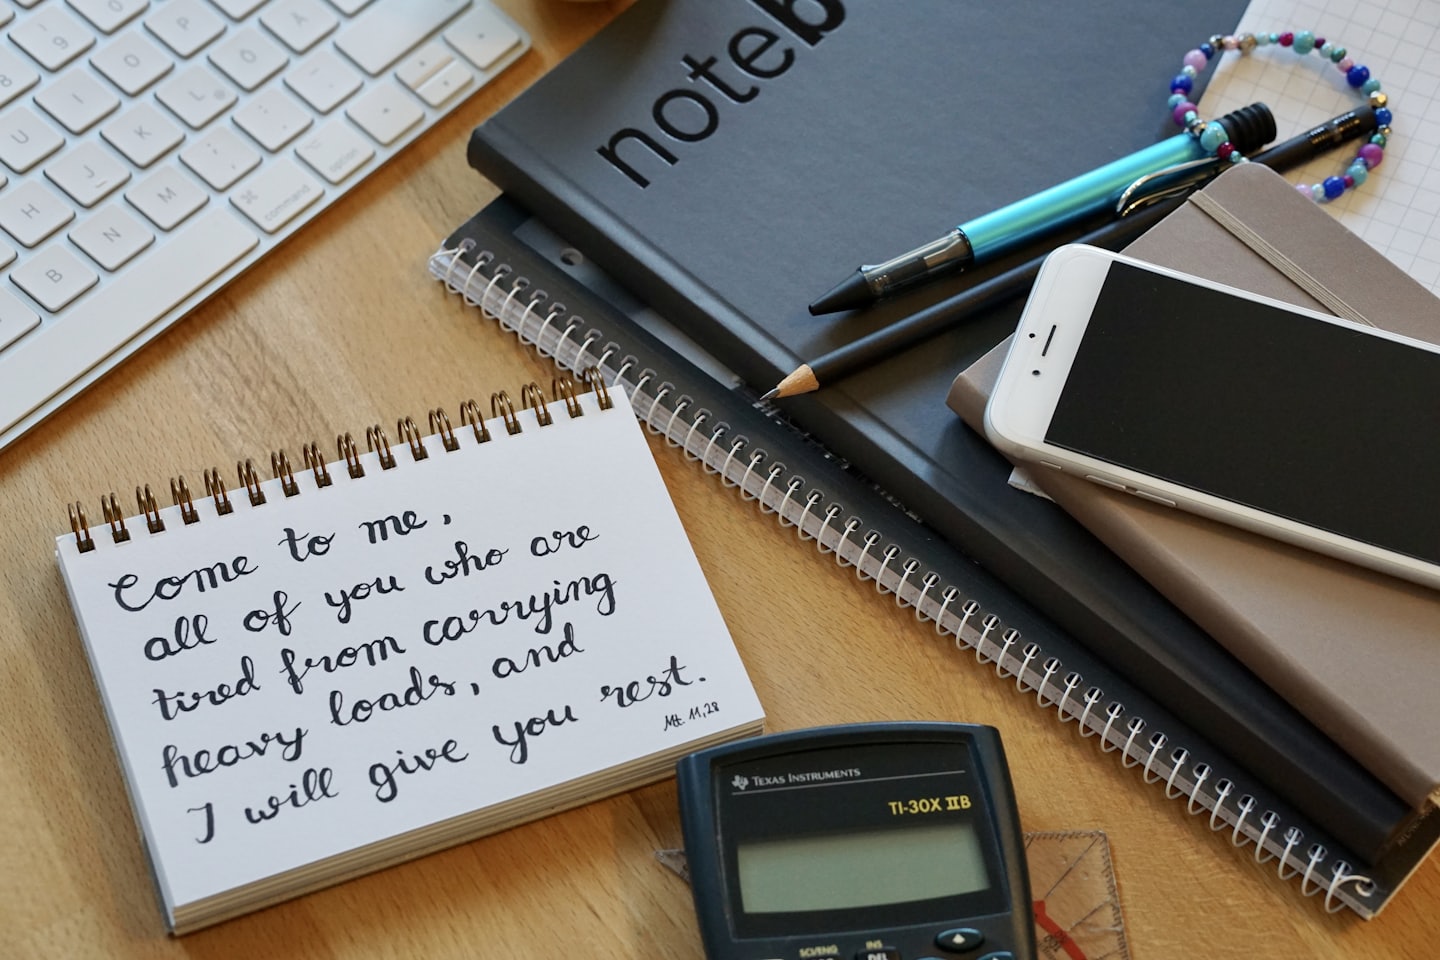 noteb
Come to me,
all of you who are
tired from carrying
heavy loads, and
I will give you rest.
Mt. 11,28
TEXAS INSTRUMENTS
TI-30X IIB
SCI/ENG
INS
DEL
9
O
P
Ö
Ä
I
U
K
L
J
H
M
N
B
⌘
command
option